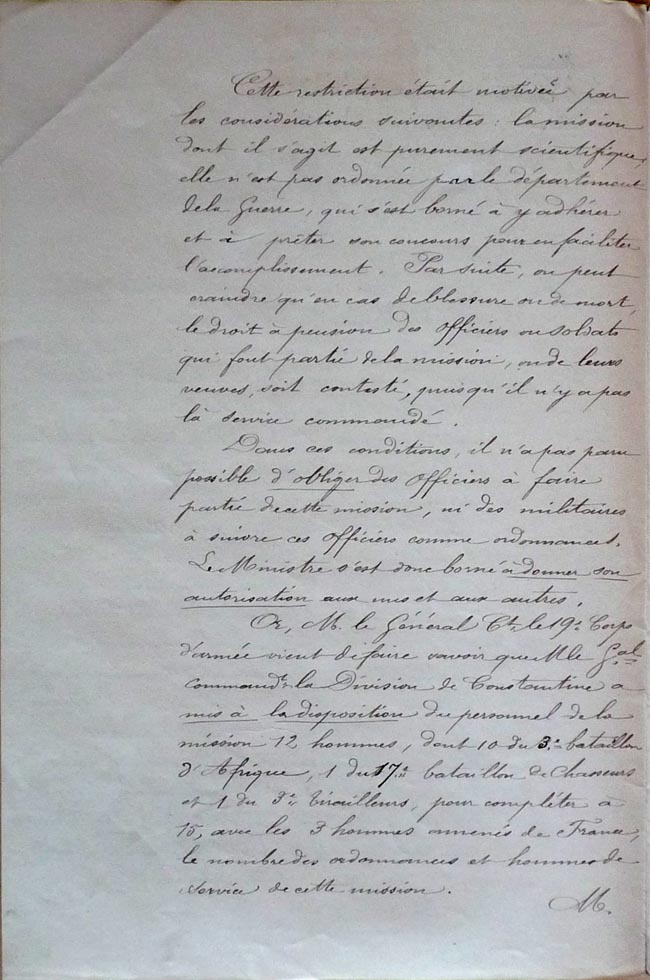 Cette restriction était motivée par
les considérations suivantes : la mission
dont il s'agit est purement scientifique,
elle n'est pas ordonnée par le département
de la Guerre, qui s'est borné à y adhérer
et à prêter son concours pour en faciliter
l'accomplissement. Par suite, on peut
craindre qu'en cas de blessure ou de mort,
le droit à pension des Officiers ou soldats
qui font partie de la mission, ou de leurs
veuves, soit contesté, puisqu'il n'y a pas
là service commandé.
Dans ces conditions, il n'a pas paru
possible d'obliger des Officiers à faire
partie de cette mission, ni des militaires
à suivre ces Officiers comme ordonnances.
Le Ministre s'est donc borné à donner son
autorisation aux uns et aux autres.
Or, M. le Général Ct. le 19e Corps
d'armée vient de faire savoir que M le Gal
commandt. la Division de Constantine a
mis à la disposition du personnel de la
mission 12 hommes, dont 10 du 3e bataillon
d'Afrique, 1 du 17e bataillon de Chasseurs
et 1 du 3e Tirailleurs, pour compléter à
15, avec les 3 hommes amenés de France,
le nombre des ordonnances et hommes de
service de cette mission.
M.